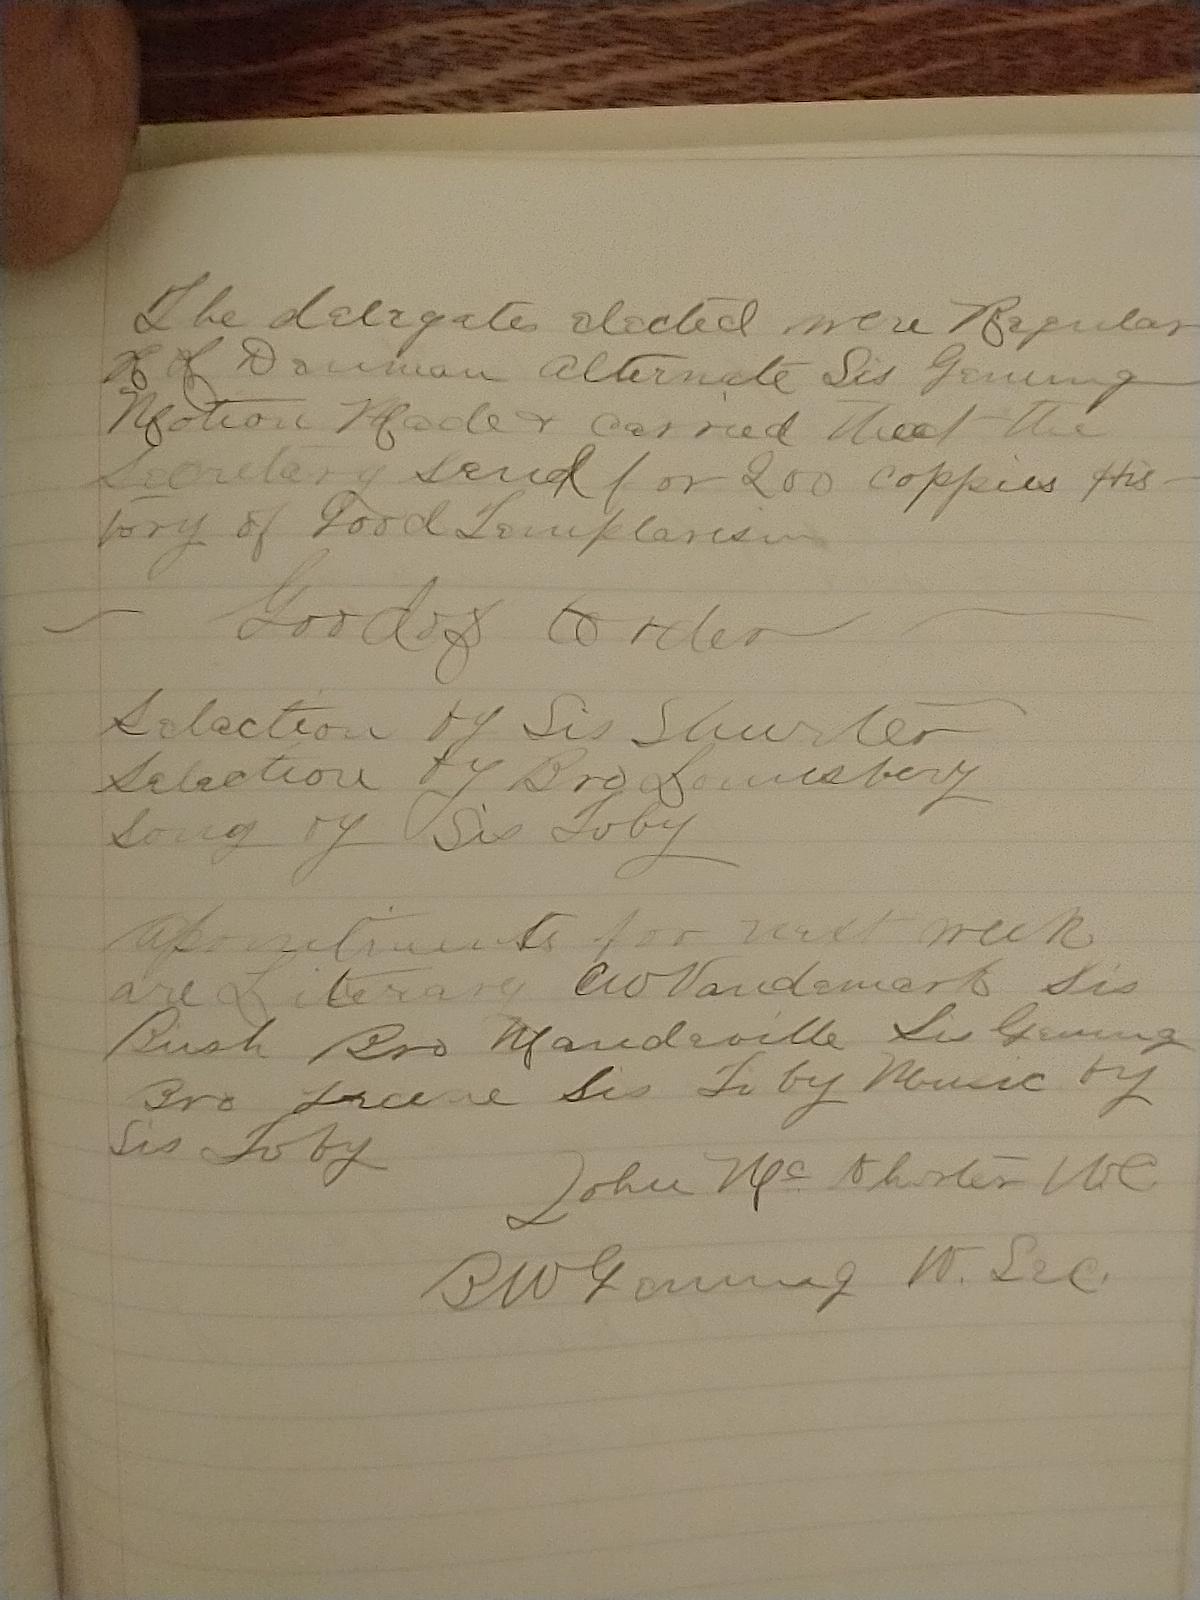 The delegates elected were Regular
Denman Alternate Sis Genung
Motion Made & carried that the
Secretary send for 200 coppies His-
tory of Good Templarism
Good of the order
Selection by Sis Shurter
Selection by Bro Lounsbery
Song by Sis Toby
Apointments for next week
are Literary CW Vandemark Sis
Bush Bro Mandeville Sis Genung
Bro Greene Sis Toby Music by
Sis Toby
John Mc WC
BW Genung W. Sec.